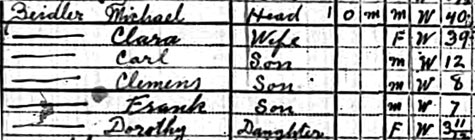 Beidler Michael Head 1 O M M W 40
Clara Wife F W 39
Carl Son M W 12
Clemens Son M W 8
Frank Son M W 7
Dorothy Daughter F W